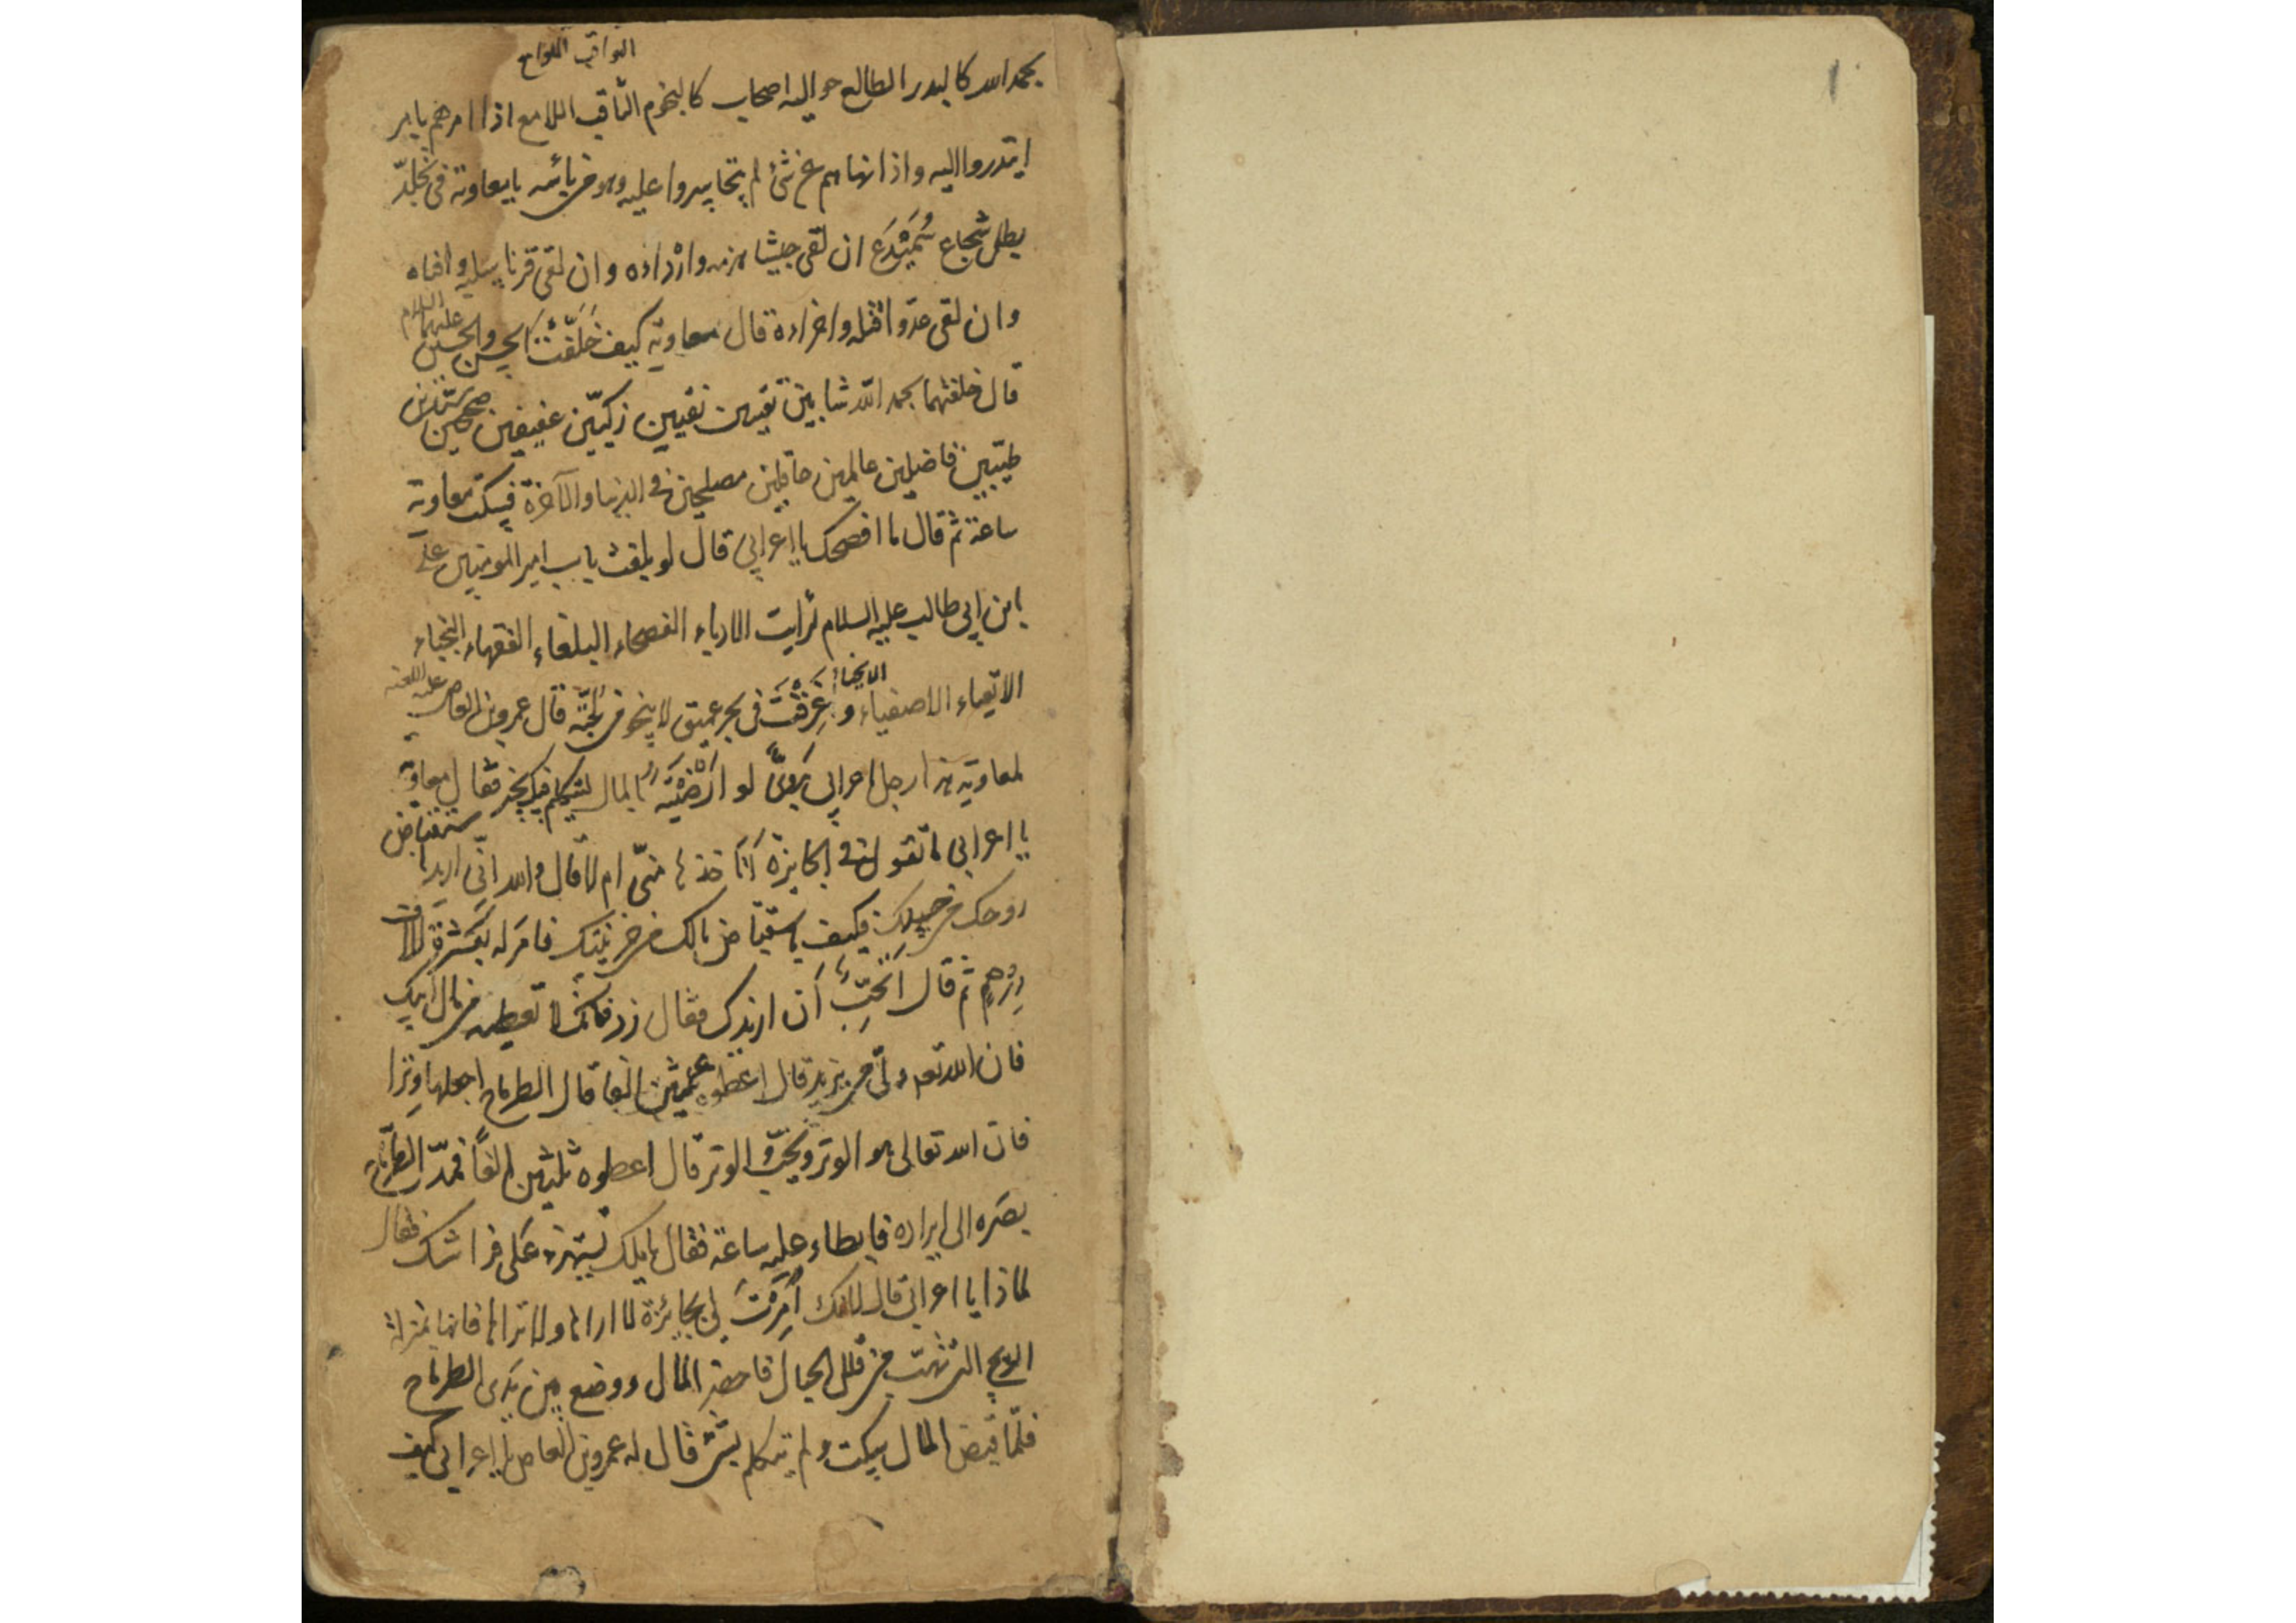 الثواقب اللوامع
بحمد الله كالبدر الطالع حواليه اصحاب كالنجوم الثاقب اللامع اذا امرهم بامر
ابتدروا اليه واذا نهاهم عن شئ لم يتجاسروا عليه وهو من بأسه يا معاوية في تجلّد
بطل شجاع سَمَيْدَع ان لقى جيشا هزمه وارْداده وان لقى قرنا سلبه وافناه
وان لقى عدوا قتله واخزاه قال معاوية كيف خَلّفْتَ الحسن والحسين عليهما السلام
قال خلفتهما بحمد الله شابين تقيين نقيين زكيّين عفيفين صحيحين سيّدين
طيّبين فاضلين عالمين عاقلين مصلحين في الدنيا والآخرة فسكت معاوية
ساعة ثم قال ما افصحك يا اعرابي قال لو بلغت باب امير المؤمنين على
ابن ابى طالب عليه السلام لرأيت الادباء الفصحاء البلغاء الفقهاء النجباء
الاتقياء الاصفياء و الانجباء
غَرَقْتَ في بحر عميق لا ينجو من لُجّته قال عمرو بن العاص عليه اللعنه
لمعاوية هذا رجل اعرابى بَدَوىٌّ لو ارْضَيْتَه بالمال لتكلم فيك بخير فقال معاوية
يا اعرابى ما تقول في الجايزة أتأخذها منّى ام لا قال والله انّى اريد استقباض
روحك من جسدك فكيف باستقباض مالك من خزينتك فامر له بعَشَرة آلاف
دِرْهمٍ ثم قال اَتُحِبُّ أَن ازيدك فقال زد فانّك لا تعطيه من مال ابيك
فان الله تعم ولىّ من يزيد قال اعْطوه عشرين الفا قال الطرماح اجعلها وترا
فان الله تعالى هو الوتر ويحبّ الوتر قال اعطوه ثلثين الفًا فمدّ الطرماح
بصَره الى ايراده فابطاء عليه ساعة فقال يا ملك تستهزء على فراشك فقال
لماذا يا اعرابى قال لانك أَمَرْتَ لى بجائزة لا اراها ولا تراها فانها بمنزلة
الريح التى تهبّ من قلل الجبال فاحضر المال ووضع بين يَدَى الطرماح
فلمّا قبض المال سكت ولم يتكلم بشئ قال له عمرو بن العاص يا اعرابى كيف